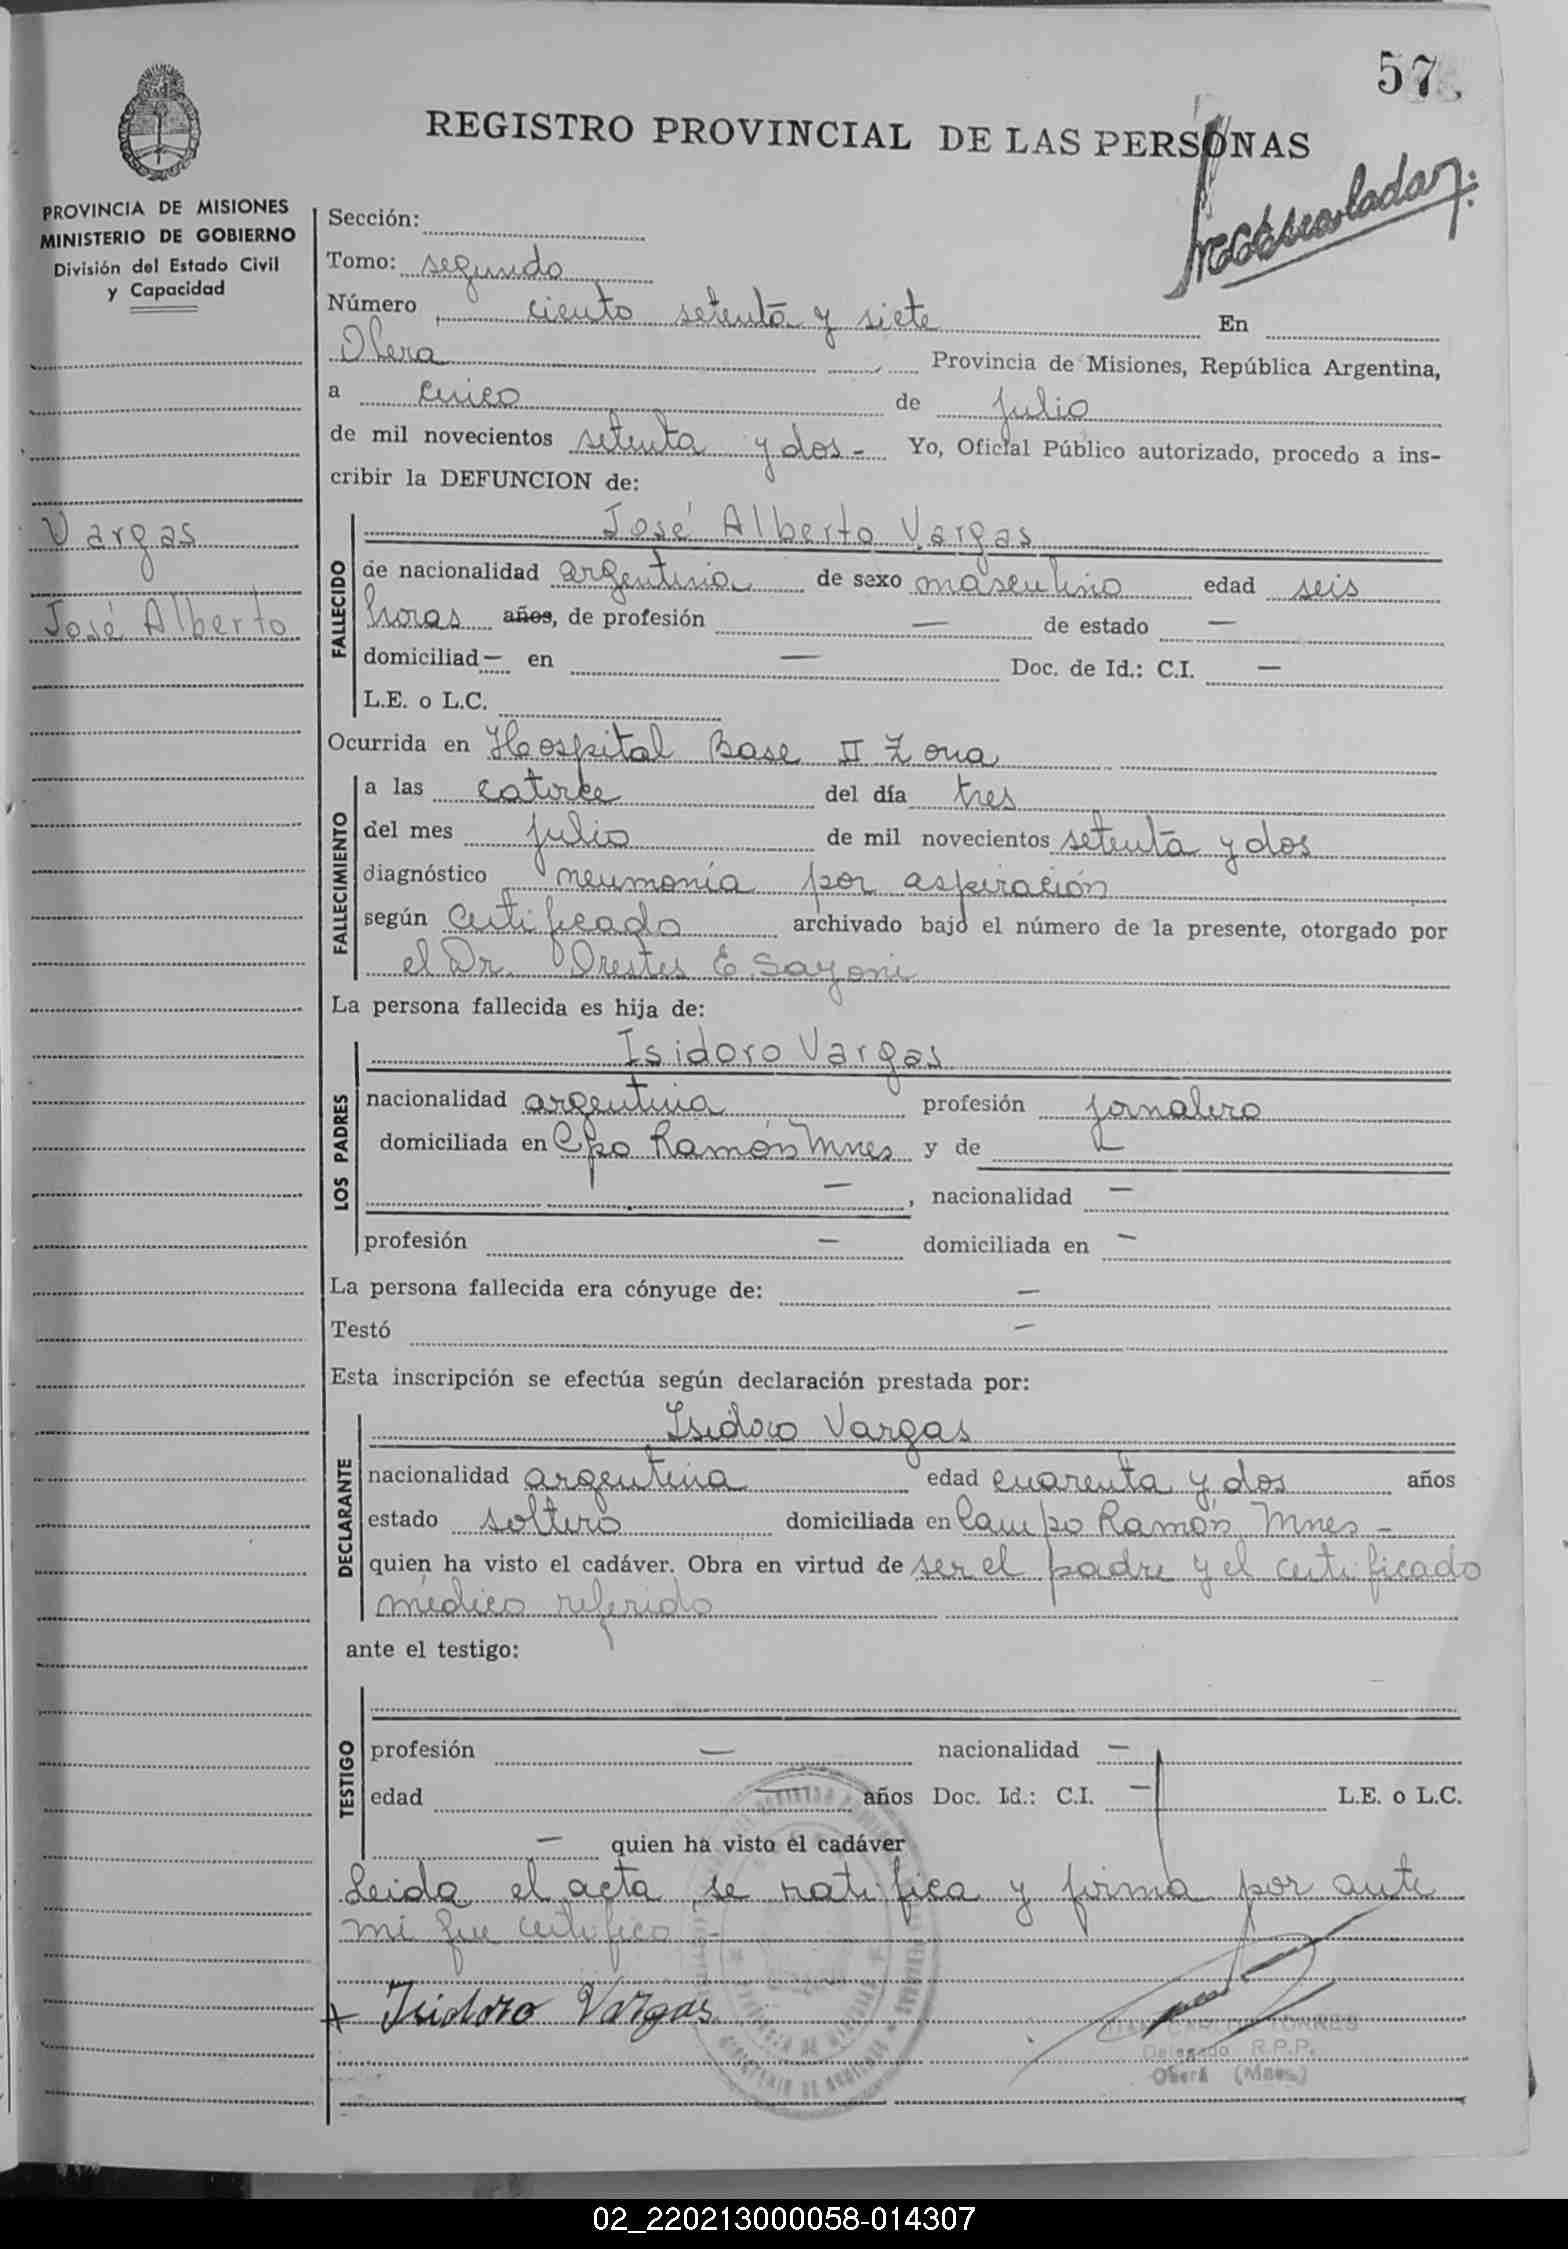 57
REGISTRO PROVINCIAL DE LAS PERSONAS
PROVINCIA DE MISIONES
MINISTERIO DE GOBIERNO
División del Estado Civil
y Capacidad
Vargas
José Alberto
Sección:
Tomo: segundo
Número ciento setenta y siete En
Obera Provincia de Misiones, República Argentina,
a cinco de julio
de mil novecientos setenta y dos - Yo, Oficial Público autorizado, procedo a ins-
cribir la DEFUNCION de:
FALLECIDO
José Alberto Vargas
de nacionalidad argentina de sexo masculino edad seis
horas años, de profesión — de estado —
domiciliad— en — Doc. de Id.: C.I. —
L.E. o L.C.
Ocurrida en Hospital Base II Zona
FALLECIMIENTO
a las catorce del día tres
del mes julio de mil novecientos setenta y dos
diagnóstico neumonía por aspiración
según certificado archivado bajo el número de la presente, otorgado por
el Dr. Orestes E. Sayoni
La persona fallecida es hija de:
LOS PADRES
Isidoro Vargas
nacionalidad argentina profesión jornalero
domiciliada en Cpo Ramón Mnes y de
—, nacionalidad —
profesión — domiciliada en —
La persona fallecida era cónyuge de: —
Testó —
Esta inscripción se efectúa según declaración prestada por:
DECLARANTE
Isidoro Vargas
nacionalidad argentina edad cuarenta y dos años
estado soltero domiciliada en Campo Ramón Mnes -
quien ha visto el cadáver. Obra en virtud de ser el padre y el certificado
médico referido
ante el testigo:
TESTIGO
profesión — nacionalidad —
edad — años Doc. Id.: C.I. — L.E. o L.C.
— quien ha visto el cadáver
Leida el acta se ratifica y firma por ante
mí que certifico -
Isidoro Vargas
TORRES
Delegado R.P.P.
Oberá (Mnes.)
02_220213000058-014307